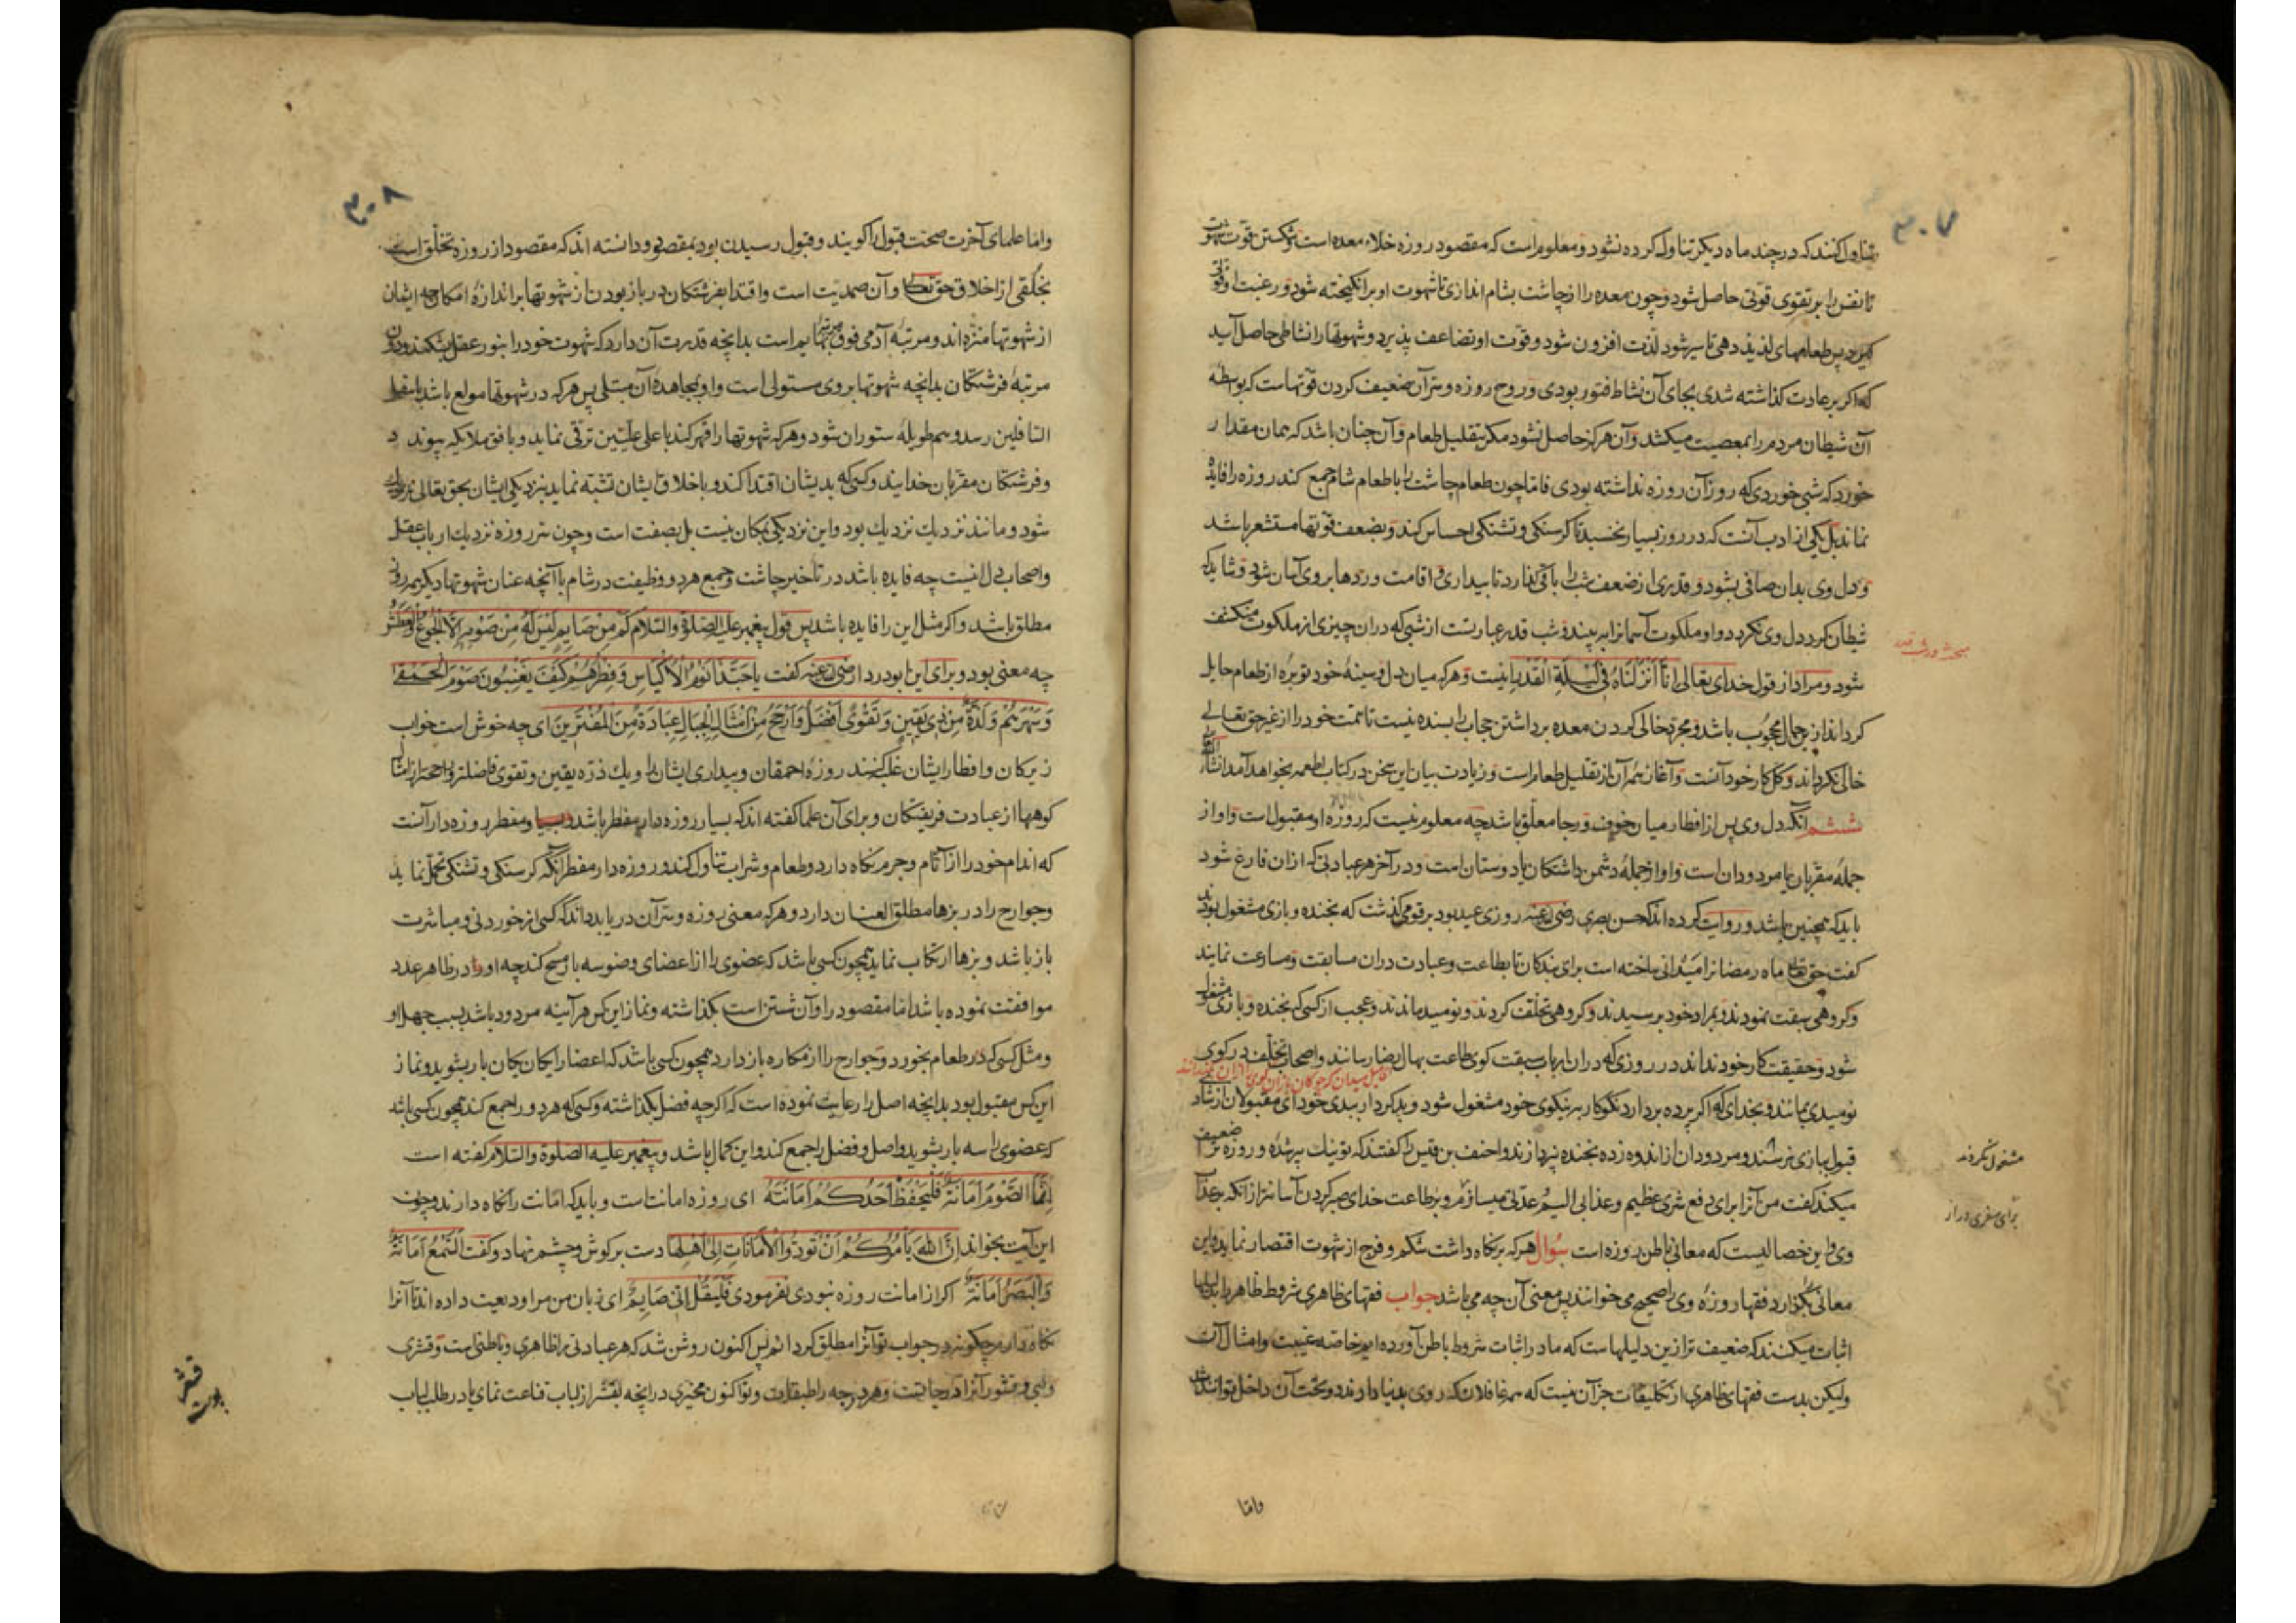 ۳۰۷
تناول کنند که در چند ماه دیکر تناول کرده نشود و معلوم است که مقصود روزه خلاء معده است و شکستن قوت شهوت
تا نفس را بر تقوی قوتی حاصل شود و چون معده را از چاشت بشام اندازی تا شهوت او برانکیخته شود و رغبت او قوت
کیرد پس طعامهای لذیذ دهی تا سیر شود لذت افزون شود و قوت او تضاعف پذیرد و شهوتها را نشاطی حاصل آید
که اکر بر عادت کذاشته شدی بجای آن نشاط فتور بودی و روح روزه و سر آن ضعیف کردن قوتهاست که بواسطه
آن شیطان مردم را بمعصیت میکشد و آن هرکز حاصل نشود مکر بتقلیل طعام و آن چنان باشد که همان مقدار
خورد که شبی خوردی که روز آن روزه نداشته بودی فاما چون طعام چاشت را با طعام شام جمع کند روزه را فایده
نماند بل یکی از ادب آنست که در روز بسیار نخسبد تا کرسنکی و تشنکی احساس کند و بضعف قوتها مستشعر باشد
و دل وی بدان صافی بشود و قدری از ضعف شب را باقی کذارد تا بیداری و اقامت وردها بر وی آسان شود و شاید که
شیطان کرد دل وی نکردد و او ملکوت آسمانرا به بیند و شب قدر عبارتست از شبی که در ان چیزی از ملکوت منکشف
شود و مراد از قول خدای تعالی انا أنزلناه فی لیلة القدر اینست و هرکه میان دل و سینه خود توبره از طعام حایل
کرداند از جمال محجوب باشد و مجرد خالی کردن معده برداشتن حجاب را بسنده نیست تا همت خود را از غیر حق تعالی
خالی نکرداند و کل کار خود آنست و آغاز همه آن از تقلیل طعام است و زیادت بیان این سخن در کتاب اطعمه بخواهد آمد انشاء الله
ششم آنکه دل وی پس از افطار میان خوف و رجا معلق باشد چه معلوم نیست که روزه او مقبول است و او از
جمله مقربان یا مردودان است و او از جمله دشمن داشتکان یا دوستان است و در آخر هر عبادتی که از ان فارغ شود
باید که همچنین باشد و روایت کرده اند که حسن بصری رضی الله عنه روزی عید بود بر قومی کذشت که بخنده و بازی مشغول بودند
کفت حق تعالی ماه رمضانرا میدانی ساخته است برای بندکان تا بطاعت و عبادت دران مسابقت و مسارعت نمایند
و کروهی سبقت نمودند و بمراد خود برسیدند و کروهی تخلف کردند و نومید ماندند و عجب از کسی که بخنده و بازی مشغول
شود و حقیقت کار خود نداند در روزی که دران ارباب سبقت کوی طاعت بهال رضا رسانند و اصحاب تخلف در کوی
نومیدی بمانند و بخدای که اکر پرده بردارد نکوکار به نیکوی خود مشغول شود و بدکردار ببدی خود ای مقبولان از شاد
قبول ببازی نرسند و مردودان از اندوه زده بخنده نپردازند و احنف بن قیس را کفتند که تو نیک پیر شده و روزه ترا ضعیف
میکند کفت من آنرا برای دفع شری عظیم و عذابی الیم عدتی میسازم و بر طاعت خدای صبر کردن آسانتر از انکه بر عذاب
وی و این خصالیست که معانی باطن روزه است سؤال هرکه بر نکاه داشت شکم و فرج از شهوت اقتصار نماید و این
معانی بکزارد فقها روزه وی را صحیح می خوانند پس معنی آن چه می باشد جواب فقهای ظاهری شروط ظاهر را بدلیلها
اثبات میکنند که ضعیف تر ازین دلیلهاست که ما در اثبات شروط باطن آورده ایم خاصه غیبت و امثال آن
ولیکن بدست فقهای ظاهری از تکلیفات جز آن نیست که همه غافلان که روی بدنیا دارند در تحت آن داخل توانند شد
مشغول نکردند
برای سفری دراز
واما
۳۰۸
واما علمای آخرت صحت قبول را کویند و قبول رسیدن بود بمقصود و دانسته اند که مقصود از روزه تخلق است
بخلقی از اخلاق حق تعالی و آن صمدیت است و اقتدا بفرشتکان در باز بودن از شهوتها بر اندازه امکان چه ایشان
از شهوتها منزه اند و مرتبه آدمی فوق مرتبه بهایم است بدانچه قدرت آن دارد که شهوت خود را بنور عقل بشکند و دون
مرتبه فرشتکان بدانچه شهوتها بر وی مستولی است و او بمجاهده آن مبتلی پس هرکه در شهوتها مولع باشد باسفل
السافلین رسد و هم طویله ستوران شود و هرکه شهوتها را قهر کند باعلی علیین ترقی نماید و بافق ملایکه پیوند د
و فرشتکان مقربان خدایند و کسی که بدیشان اقتدا کند و باخلاق ایشان تشبه نماید بنزدیکی ایشان بحق تعالی نزدیک
شود و مانند نزدیک نزدیک بود و این نزدیکی بمکان نیست بل بصفت است و چون سر روزه نزدیک ارباب عقل
و اصحاب دل اینست چه فایده باشد در تاخیر چاشت و جمع هر دو وظیفت در شام با آنچه عنان شهوتها دیکر همه روز
مطلق باشد و اکر مثل این را فایده باشد پس قول پیغمبر علیه الصلوة و السلام کم من صایم لیس له من صومه الا الجوع والعطش
چه معنی بود و برای این ابودردا رضی الله عنه کفت یا حبذا نوم الاکیاس و فطرهم کیف یغنبون صوم الحمقی
و سهرهم و لذرة من ذی یقین و تقوی افضل و ارجح من امثال الجبال عبادة من المغترین ای چه خوش است خواب
زیرکان و افطار ایشان غلب کنند روزه احمقان و بیداری ایشان را و یک ذره یقین و تقوی فاضلتر و راجحتر از امثال
کوهها از عبادت فریفتکان و برای آن علما کفته اند که بسیار روزه دار مفطر باشد و بسیار مفطر روزه دار آنست
که اندام خود را از آثام و جرم نکاه دارد و طعام و شراب تناول کند و روزه دار مفطر آنکه کرسنکی و تشنکی تحمل نماید
و جوارح را در بزها مطلق العنان دارد و هرکه معنی روزه و سر آن دریابد داند که کسی از خوردنی و مباشرت
باز باشد و بزها ارتکاب نماید همچون کسی باشد که عضوی را از اعضای وضو سه بار مسح کند چه او را در ظاهر عدد
موافقت نموده باشد اما مقصود را و آن شستن است بکذاشته و نماز این کس هر آینه مردود باشد بسبب جهل او
و مثل کسی که در طعام بخورد و جوارح را از مکاره باز دارد همچون کسی باشد که اعضا را یکان یکان بار بشوید و نماز
این کس مقبول بود بدانچه اصل را رعایت نموده است که اکرچه فضل بکذاشته و کسی که هر دو را جمع کند همچون کسی باشد
که عضوی را سه بار بشوید و اصل و فضل را جمع کند و این کمال باشد و پیغمبر علیه الصلوة والسلام کفته است
إنما الصوم أمانة فلیحفظ أحدکم أمانته ای روزه امانت است و باید که امانت را نکاه دارند و چون
این آیت بخواند إن الله یأمرکم أن تؤدوا الأمانات إلی أهلها دست بر کوش و چشم نهاد و کفت السمع أمانة
والبصر أمانة اکر از امانت روزه نبودی نفرمودی فلیقل إنی صایم ای زبان من مرا ودیعت داده اند تا آنرا
نکاه دارم چکونه در جواب تو آنرا مطلق کردانم پس اکنون روشن شد که هر عبادتی را ظاهری و باطنی است و قشری
و لبی و قشور آنرا درجاتست و هر درجه را طبقات و تو اکنون مخیری در آنچه بقشر از لباب قناعت نمای یا در طلب لباب
قشر
پوست